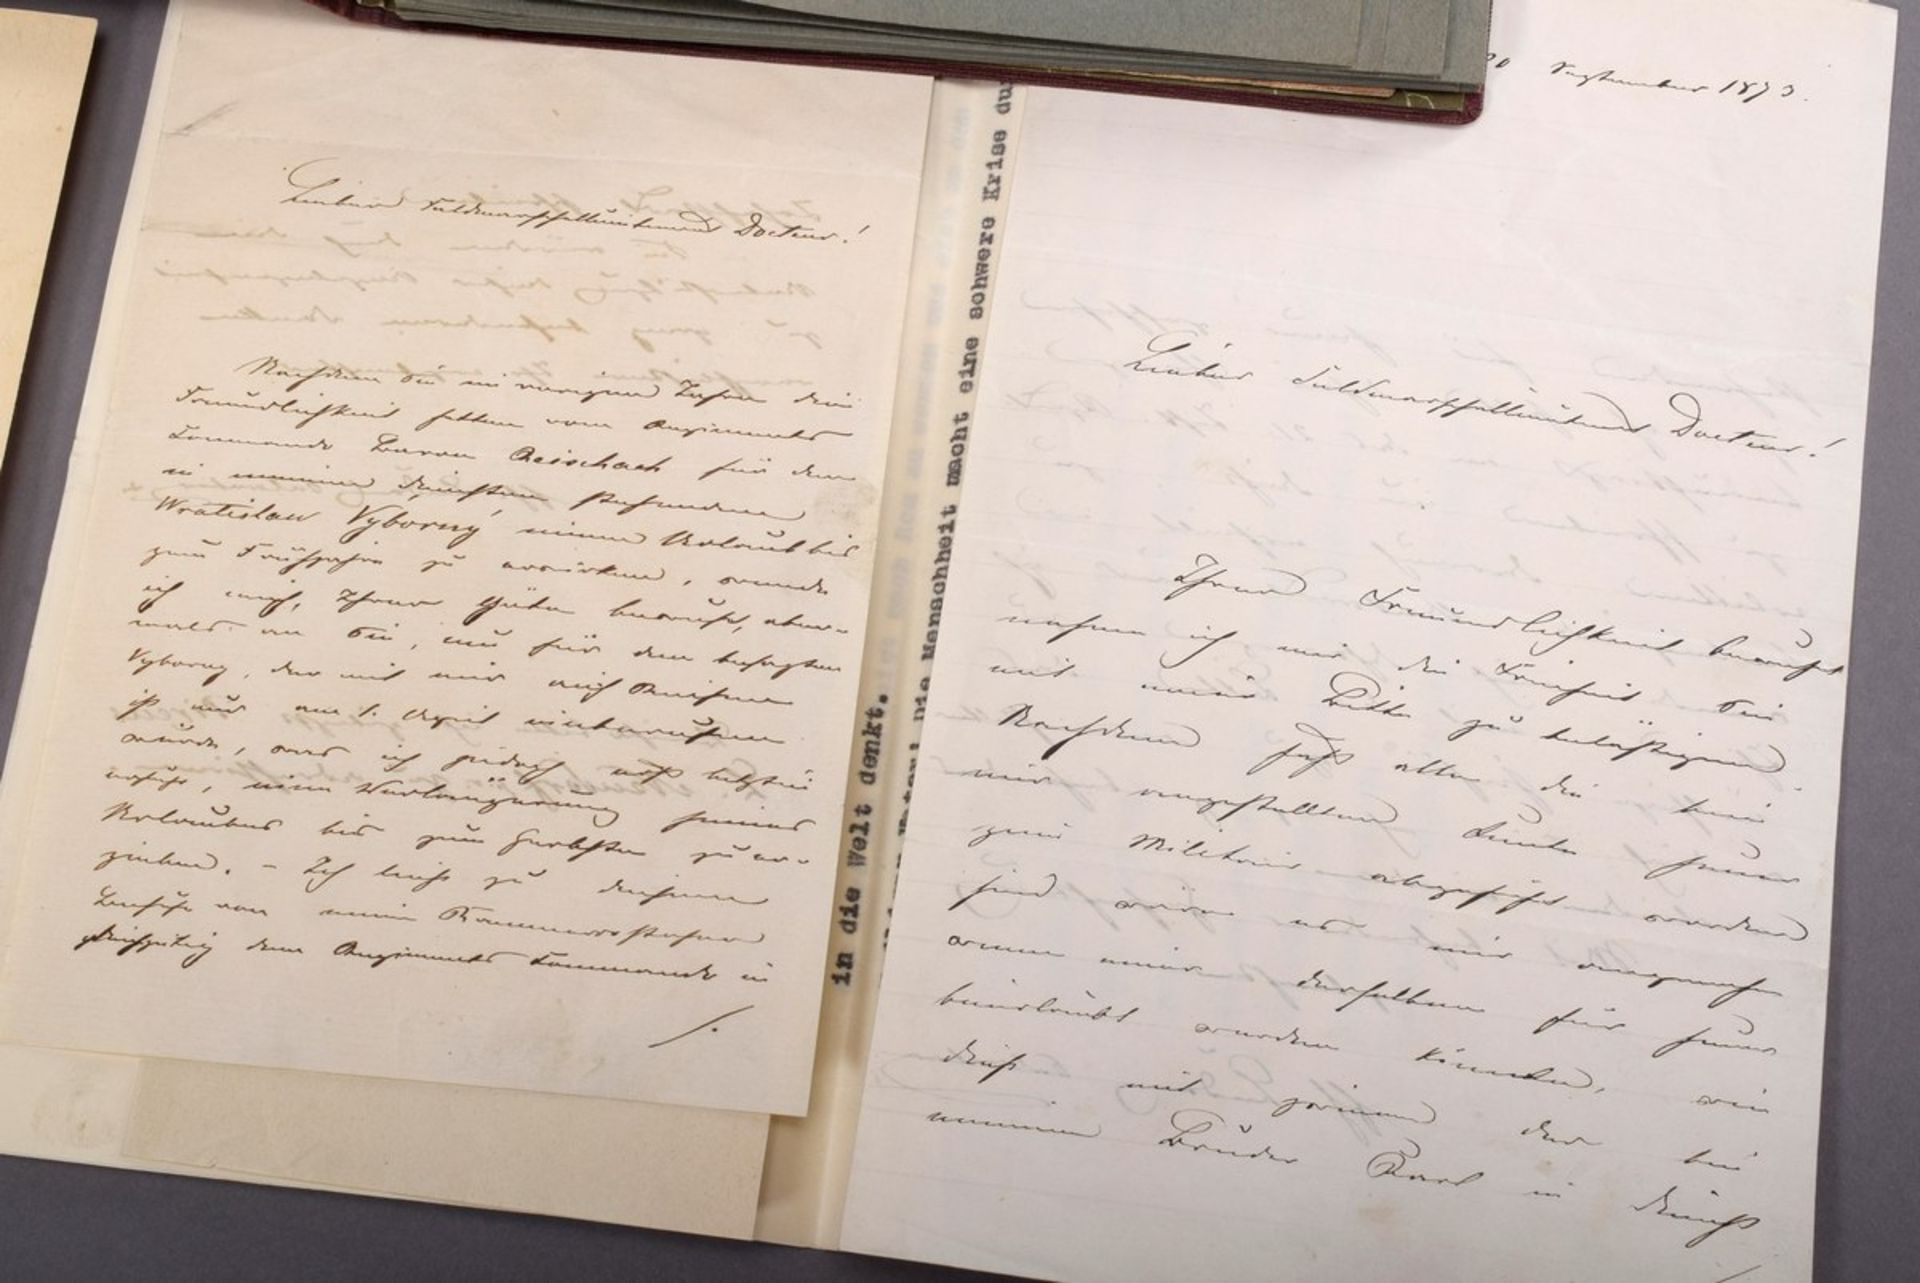 Lieber Feldmarschallieutenant Docteur!
Nachdem Sie im vorigen Jahre die
Freundlichkeit hatten vom Regiments
Commando Baron Reischach für den
in meinen Diensten stehenden
Wratislaw Vyborny, einen Urlaub bis
zum Frühjahr zu erwirken, wende
ich mich, Ihrer Güte bewußt, aber-
mals an Sie, um für den besagten
Vyborny, der mit mir auf Reisen
ist und am 1. April einberufen
wurde, was ich jedoch erst letzthin
erfuhr, eine Verlängerung seines
Urlaubes bis zum Herbste zu er-
ziehen. – Ich ließ zu diesem
Behufe von
gleichzeitig dem Regiments Commando
in die Welt denkt.
Die Menschheit macht eine schwere Krise du
September 1873.
Lieber Feldmarschallieutenant Docteur!
Ihrer Freundlichkeit bewußt
nehme ich mir die Freiheit Sie
mit einer Bitte zu belästigen.
Nachdem fast alle die bei
mir angestellten Leute heuer
zum Militair abgeführt worden
sind wäre es mir angenehm
wenn einer derselben für heuer
beurlaubt werden könnte, wie
dieß mit jenem der bei
meinem Bruder Karl in Dienst